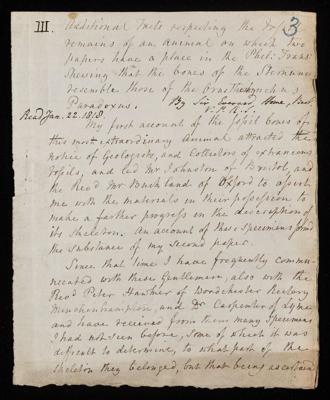 3
III. Additional facts respecting the fossil
remains of an Animal on which two
papers have a place in the Phil: Trans:
shewing that the bones of the Sternum
resemble those of the Ornithorynchus
Paradoxus. By Sir Everard Home, Bart.
V.P.R.S.
Read Jan. 22. 1818.
My first account of the fossil bones of
this most extraordinary animal attracted the
notice of Geologists, and Collectors of extraneous
fossils, and led Mr Johnston of Bristol, and
the Revd Mr Buckland of Oxford to assist
me with the materials in their possession to
make a farther progress in the description of
its skeleton. An account of these specimens forms
the substance of my second paper.
Since that time I have frequently commu-
nicated with these Gentlemen, also with the
Revd Peter Hawker of Woodchester Rectory
Minchinhampton, and Dr Carpenter of Lyme
and have received from them many specimens
I had not seen before, some of which it was
difficult to determine, to what part of the
skeleton they belonged, but that being ascertained